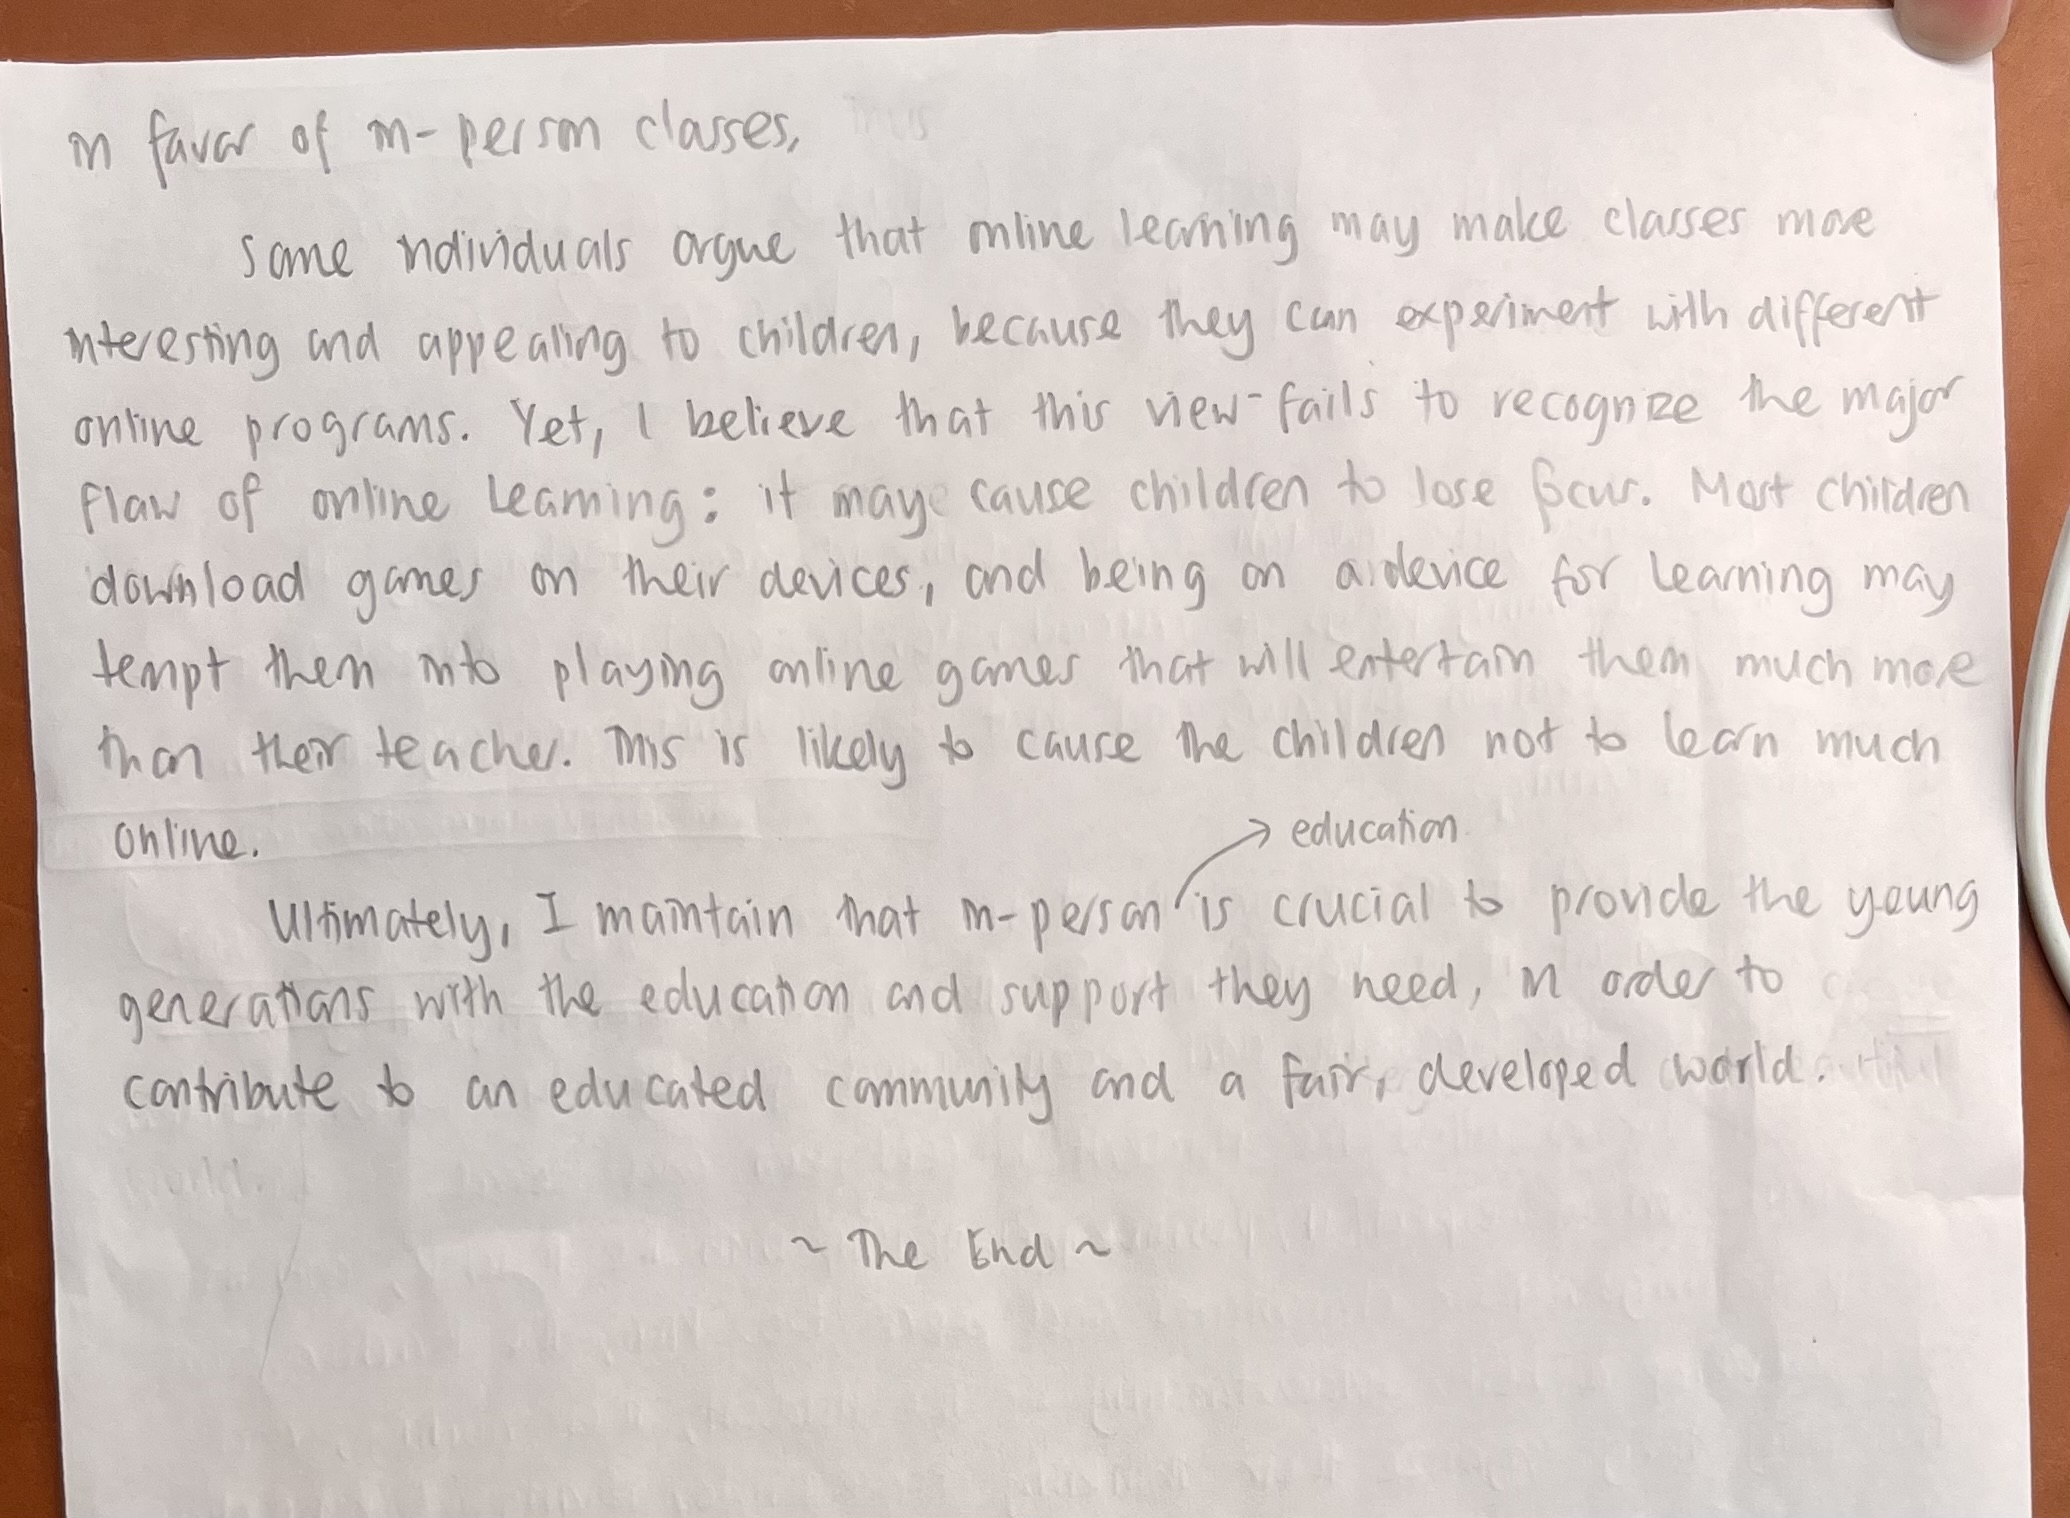 in favor of in-person classes.
Some individuals argue that online learning may make classes more
interesting and appealing to children, because they can experiment with different
online programs. Yet, I believe that this view fails to recognize the major
flaw of online learning: it may cause children to lose focus. Most children
download games on their devices, and being on a device for learning may
tempt them into playing online games that will entertain them much more
than their teacher. This is likely to cause the children not to learn much
online.
→ education
Ultimately, I maintain that in-person is crucial to provide the young
generations with the education and support they need, in order to
contribute to an educated community and a fair, developed world.
~ The End ~